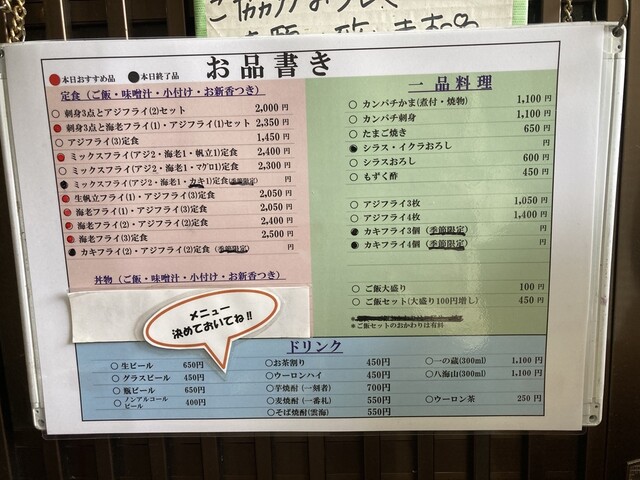 ご協力よろしく
お品書き
●本日おすすめ品 ●本日終了品
定食（ご飯・味噌汁・小付け・お新香つき）
○ 刺身3点とアジフライ(2)セット 2,000 円
● 刺身3点と海老フライ(1)・アジフライ(1)セット 2,350 円
○ アジフライ(3)定食 1,450 円
● ミックスフライ(アジ2・海老1・帆立1)定食 2,400 円
○ ミックスフライ(アジ2・海老1・マグロ1)定食 2,300 円
● ミックスフライ(アジ2・海老1・カキ1)定食(季節限定) 円
● 生帆立フライ(1)・アジフライ(3)定食 2,050 円
● 海老フライ(1)・アジフライ(3)定食 2,050 円
● 海老フライ(2)・アジフライ(2)定食 2,400 円
● 海老フライ(3)定食 2,500 円
● カキフライ(2)・アジフライ(2)定食(季節限定) 円
丼物（ご飯・味噌汁・小付け・お新香つき）
メニュー
決めておいてね!!
一品料理
○ カンパチかま(煮付・焼物) 1,100 円
○ カンパチ刺身 1,100 円
○ たまご焼き 650 円
● シラス・イクラおろし 円
○ シラスおろし 600 円
○ もずく酢 450 円
○ アジフライ3枚 1,050 円
○ アジフライ4枚 1,400 円
● カキフライ3個 (季節限定) 円
● カキフライ4個 (季節限定) 円
○ ご飯大盛り 100 円
○ ご飯セット(大盛り100円増し) 450 円
＊ご飯セットのおかわりは有料
ドリンク
○ 生ビール 650円
○ グラスビール 450円
○ 瓶ビール 650円
○ ノンアルコールビール 400円
○お茶割り 450円
○ウーロンハイ 450円
○芋焼酎 (一刻者) 700円
○麦焼酎 (一番札) 550円
○そば焼酎(雲海) 550円
○一の蔵(300ml) 1,100 円
○八海山(300ml) 1,100 円
○ウーロン茶 250 円